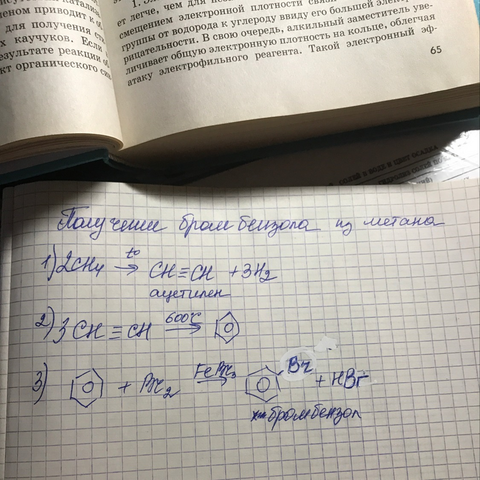 исутст
катали
неном приводит к об
для получения сте
х каучуков. Если
результате реакции об
кт органического син
ет легче, чем для
смещением электронной плотности связи
группы от водорода к углероду ввиду его большей элект
рицательности. В свою очередь, алкильный заместитель уве-
личивает общую электронную плотность на кольце, облегчая
атаку электрофильного реагента. Такой электронный эф-
65
Получение бромбензола из метана
1) 2CH4 t° → CH≡CH + 3H2
ацетилен
2) 3CH≡CH 600°C →
3) + Br2 FeBr3 → Br + HBr
бромбензол